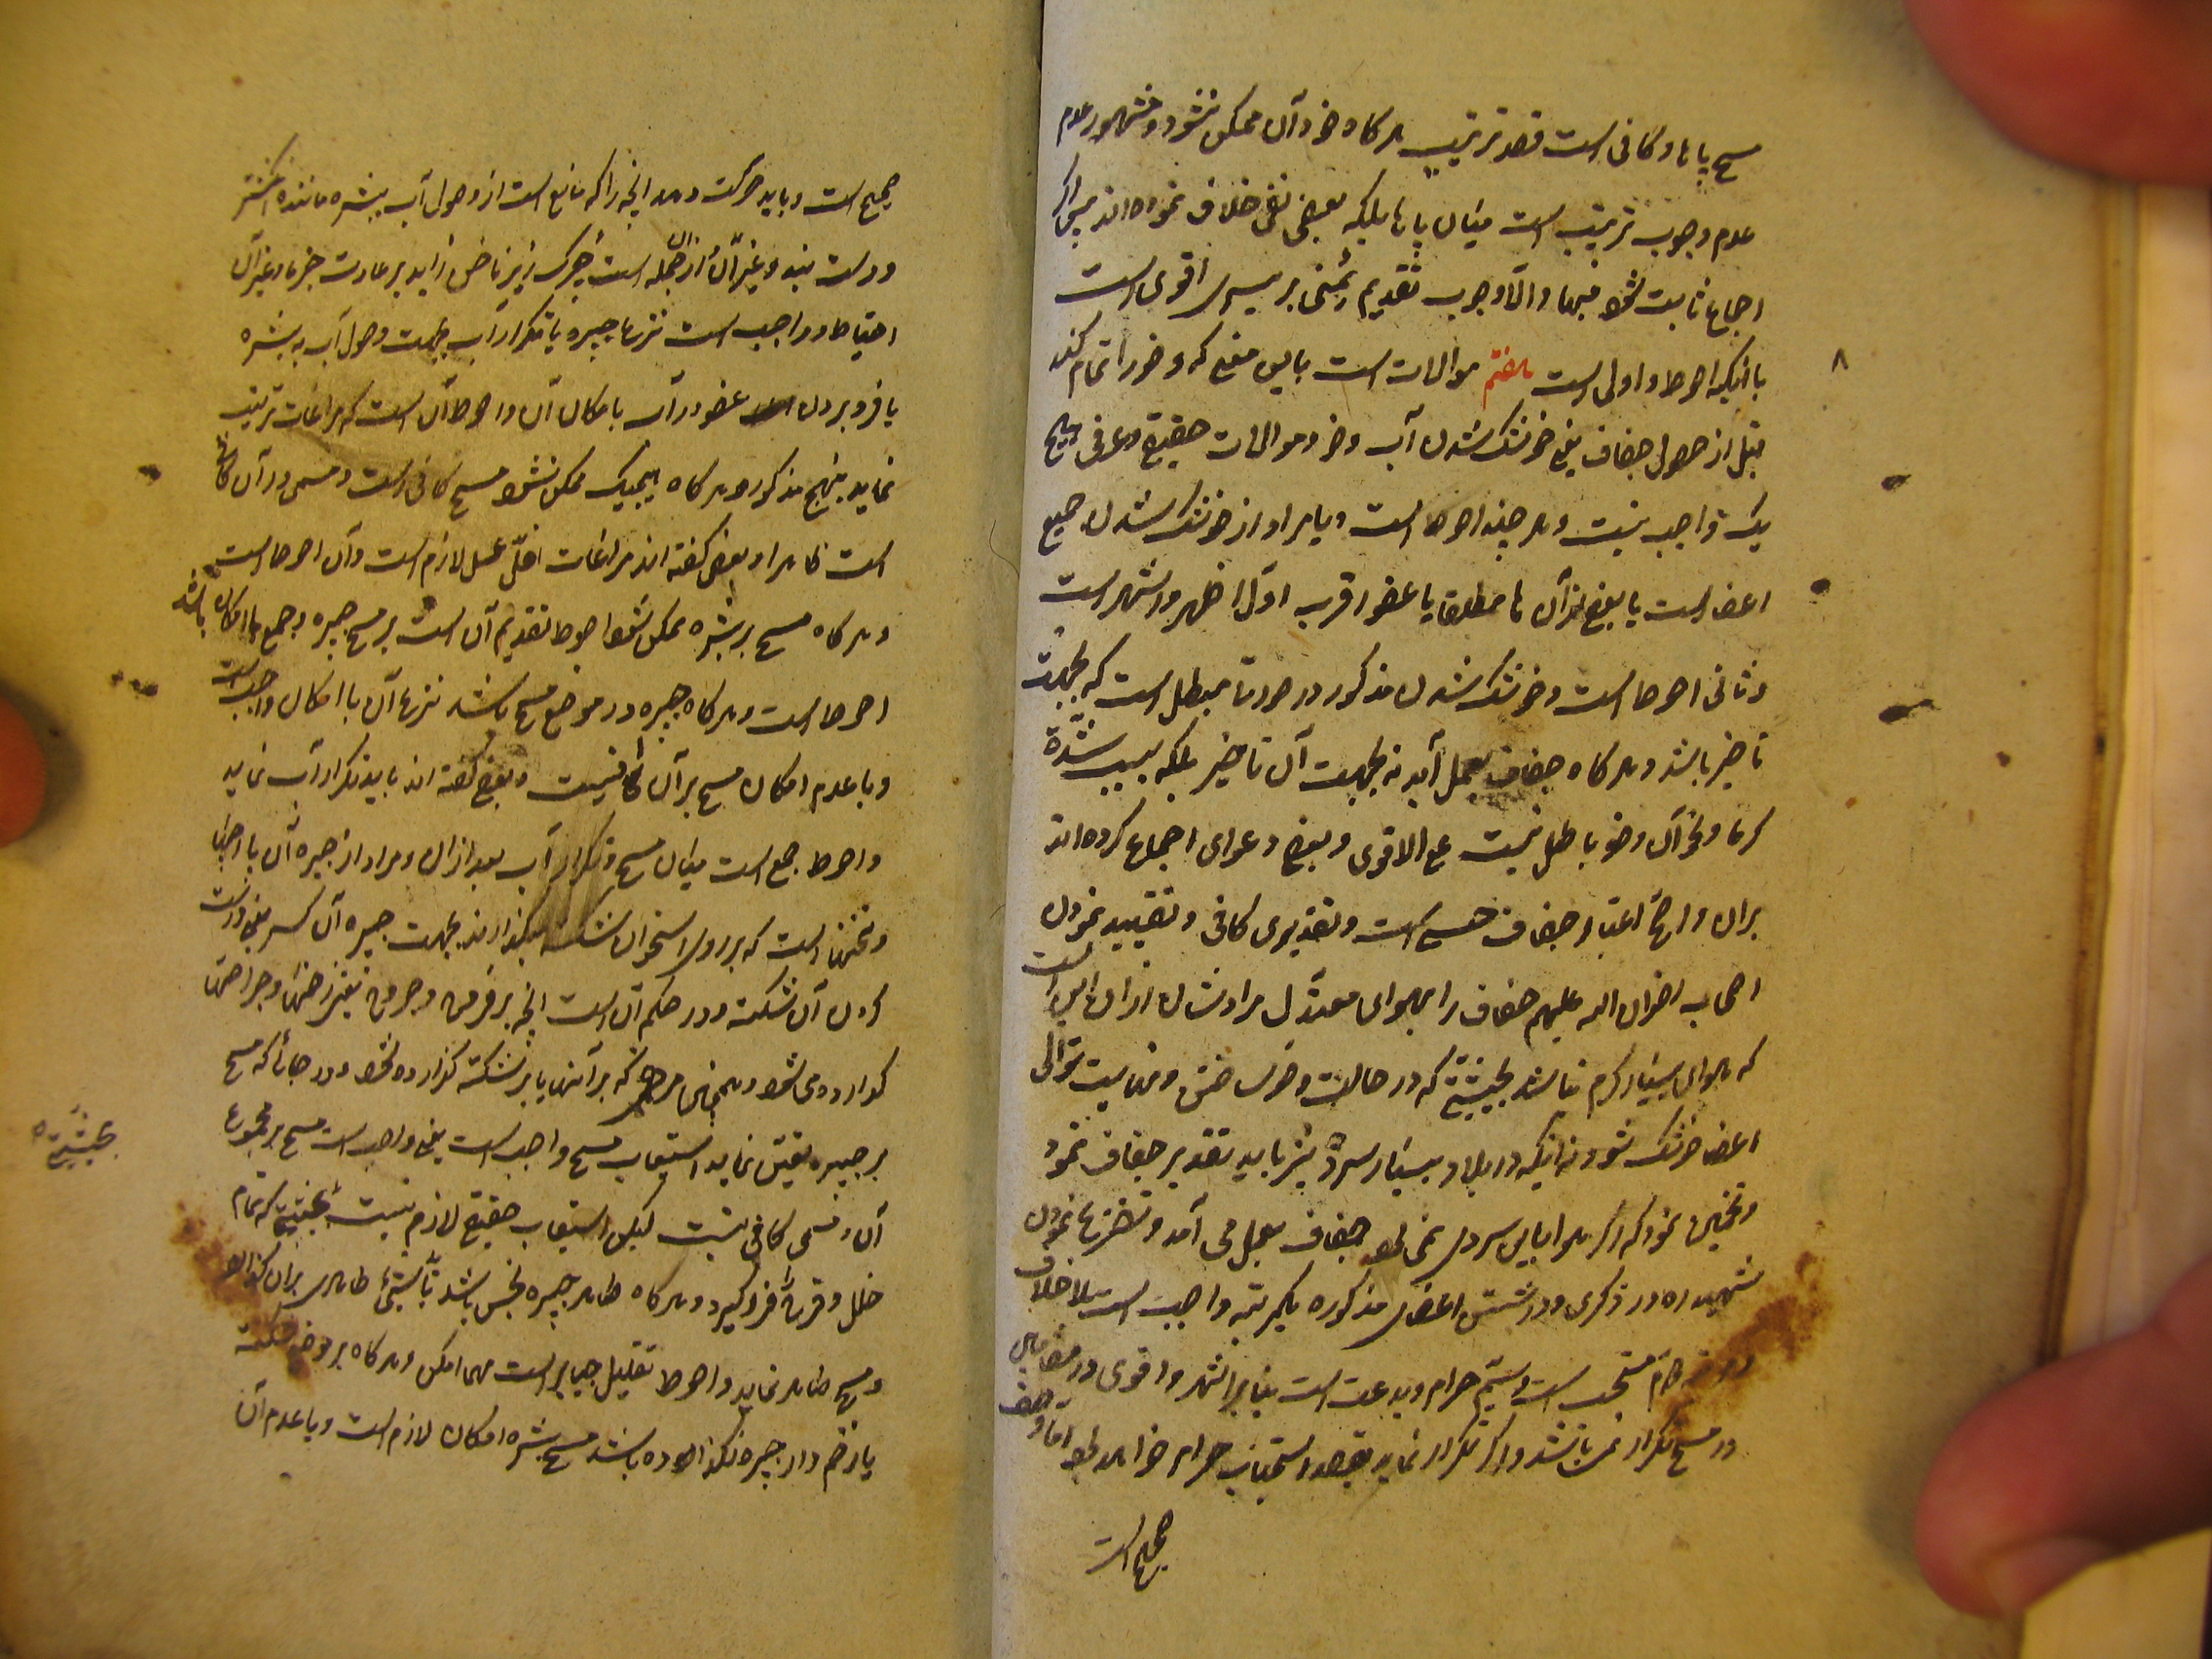 مسح پاها و کافی است قصد ترتیب هرگاه خود آن ممکن نشود و مشهور عدم
عدم وجوب ترتیب است میان پاها بلکه بعضی نفی خلاف نموده‌اند پس اگر
اجماع ثابت شود فبها والّا وجوب تقدیم یمنی بر یسری اقوی است
با آنکه احوط و اولی است هفتم موالات است باین معنی که وضو را تمام کند
۸
قبل از حصول جفاف یعنی خشک شدن آب وضو و موالات حقیقی و عرفی هیچ
یک واجب نیست و هر چند احوط است و آیا مراد از خشک شدن جمیع
اعضا است یا بعض از آن مطلقا یا عضو اقرب اوّل اظهر و اشهر است
و ثانی احوط است و خشک شدن مذکور در صورتی مبطل است که بجهت
تاخیر باشد و هرگاه جفاف بعمل آید نه بجهت آن تاخیر بلکه بسبب شدّة
گرما و نحو آن وضو باطل نیست علی الاقوی و بعضی دعوای اجماع کرده‌اند
بران و اعتبار جفاف حسی است و تقدیری کافی و تقیید نمودن
اصحاب رضوان الله علیهم جفاف را بهوای معتدل مرادشان از آن این است
که هوای بسیار گرم نباشد بحیثیتی که در حالت وضو ساختن و نهایت توالی
اعضا خشک شود نه اینکه در بلاد بسیار سرد نیز باید تقدیر جفاف نمود
و تخمین نمود که اگر هوا باین سردی نمی بود جفاف بعمل می آمد و نمودن
شهید ره در ذکری و در شستن اعضای مذکوره یکمرتبه واجب است بلا خلاف
و دوم مستحب است و سیّم حرام و بدعت است بنابر اشهر و اقوی و در
در مسح تکرار نمی باشد و اگر تکرار نماید بقصد استحباب حرام خواهد بود امّا وضو
صحیح است
صحیح است و باید حرکت دهد آنچه را که مانع است از وصول آب ببشره مانند انگشتر
و دست بند و غیر آن و از آن جمله است چرک زیر ناخن زاید بر عادت و غیر آن
احتیاطا و واجب است نزع جبیره یا تکرار آب بجهت وصول آب به بشره
یا فرو بردن عضو در آب با امکان آن و احوط آن است که مراعات ترتیب
نماید بنهج مذکور و هرگاه هیچیک ممکن نشود مسح کافی است و مسمی در آن کافی
است ظاهرا و بعضی گفته اند مراعات اقلّ غسل لازم است و آن احوط است
و هرگاه مسح بر بشره ممکن شود احوط تقدیم آن است بر مسح جبیره و جمع با امکان باشد
احوط است و هرگاه جبیره در موضع مسح باشد نزع آن با امکان واجب است
و با عدم امکان مسح بر آن کافیست و بعضی گفته اند باید تکرار آب نماید
و احوط جمع است میان مسح و تکرار آب بعد از آن و مراد از جبیره آن پارچها
و تختها است که بر روی استخوان شکسته میگذارند بجهت جبیره آن کسر یعنی درست
کردن آن شکسته و در حکم آن است آنچه بر قروح و جروح یعنی زخمها و جراحتها
گذارده می شود و همچنین مرهمی که بر آنها یا بر شکسته گذارده شود و در جائی که مسح
بر جبیره تعیّن نماید استیعاب مسح واجب است یعنی واجب است مسح بر مجموع
آن و مسمی کافی نیست لیکن استیعاب حقیقی لازم نیست بحیثیتی که تمام
بحیثیتی
خلل و فرج را فرو گیرد و هرگاه ظاهر جبیره نجس باشد باید شیئی طاهری بران گذارد
و مسح ظاهر نماید و احوط تقلیل جبایر است مهما امکن و هرگاه بر موضع شکسته
یا زخم دار جبیره نگذارده باشند مسح بشره با امکان لازم است و با عدم آن